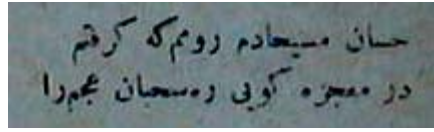 حسان مسیحادم رومم که کرفتم
در معجزه کویی ره سحبان عجمرا